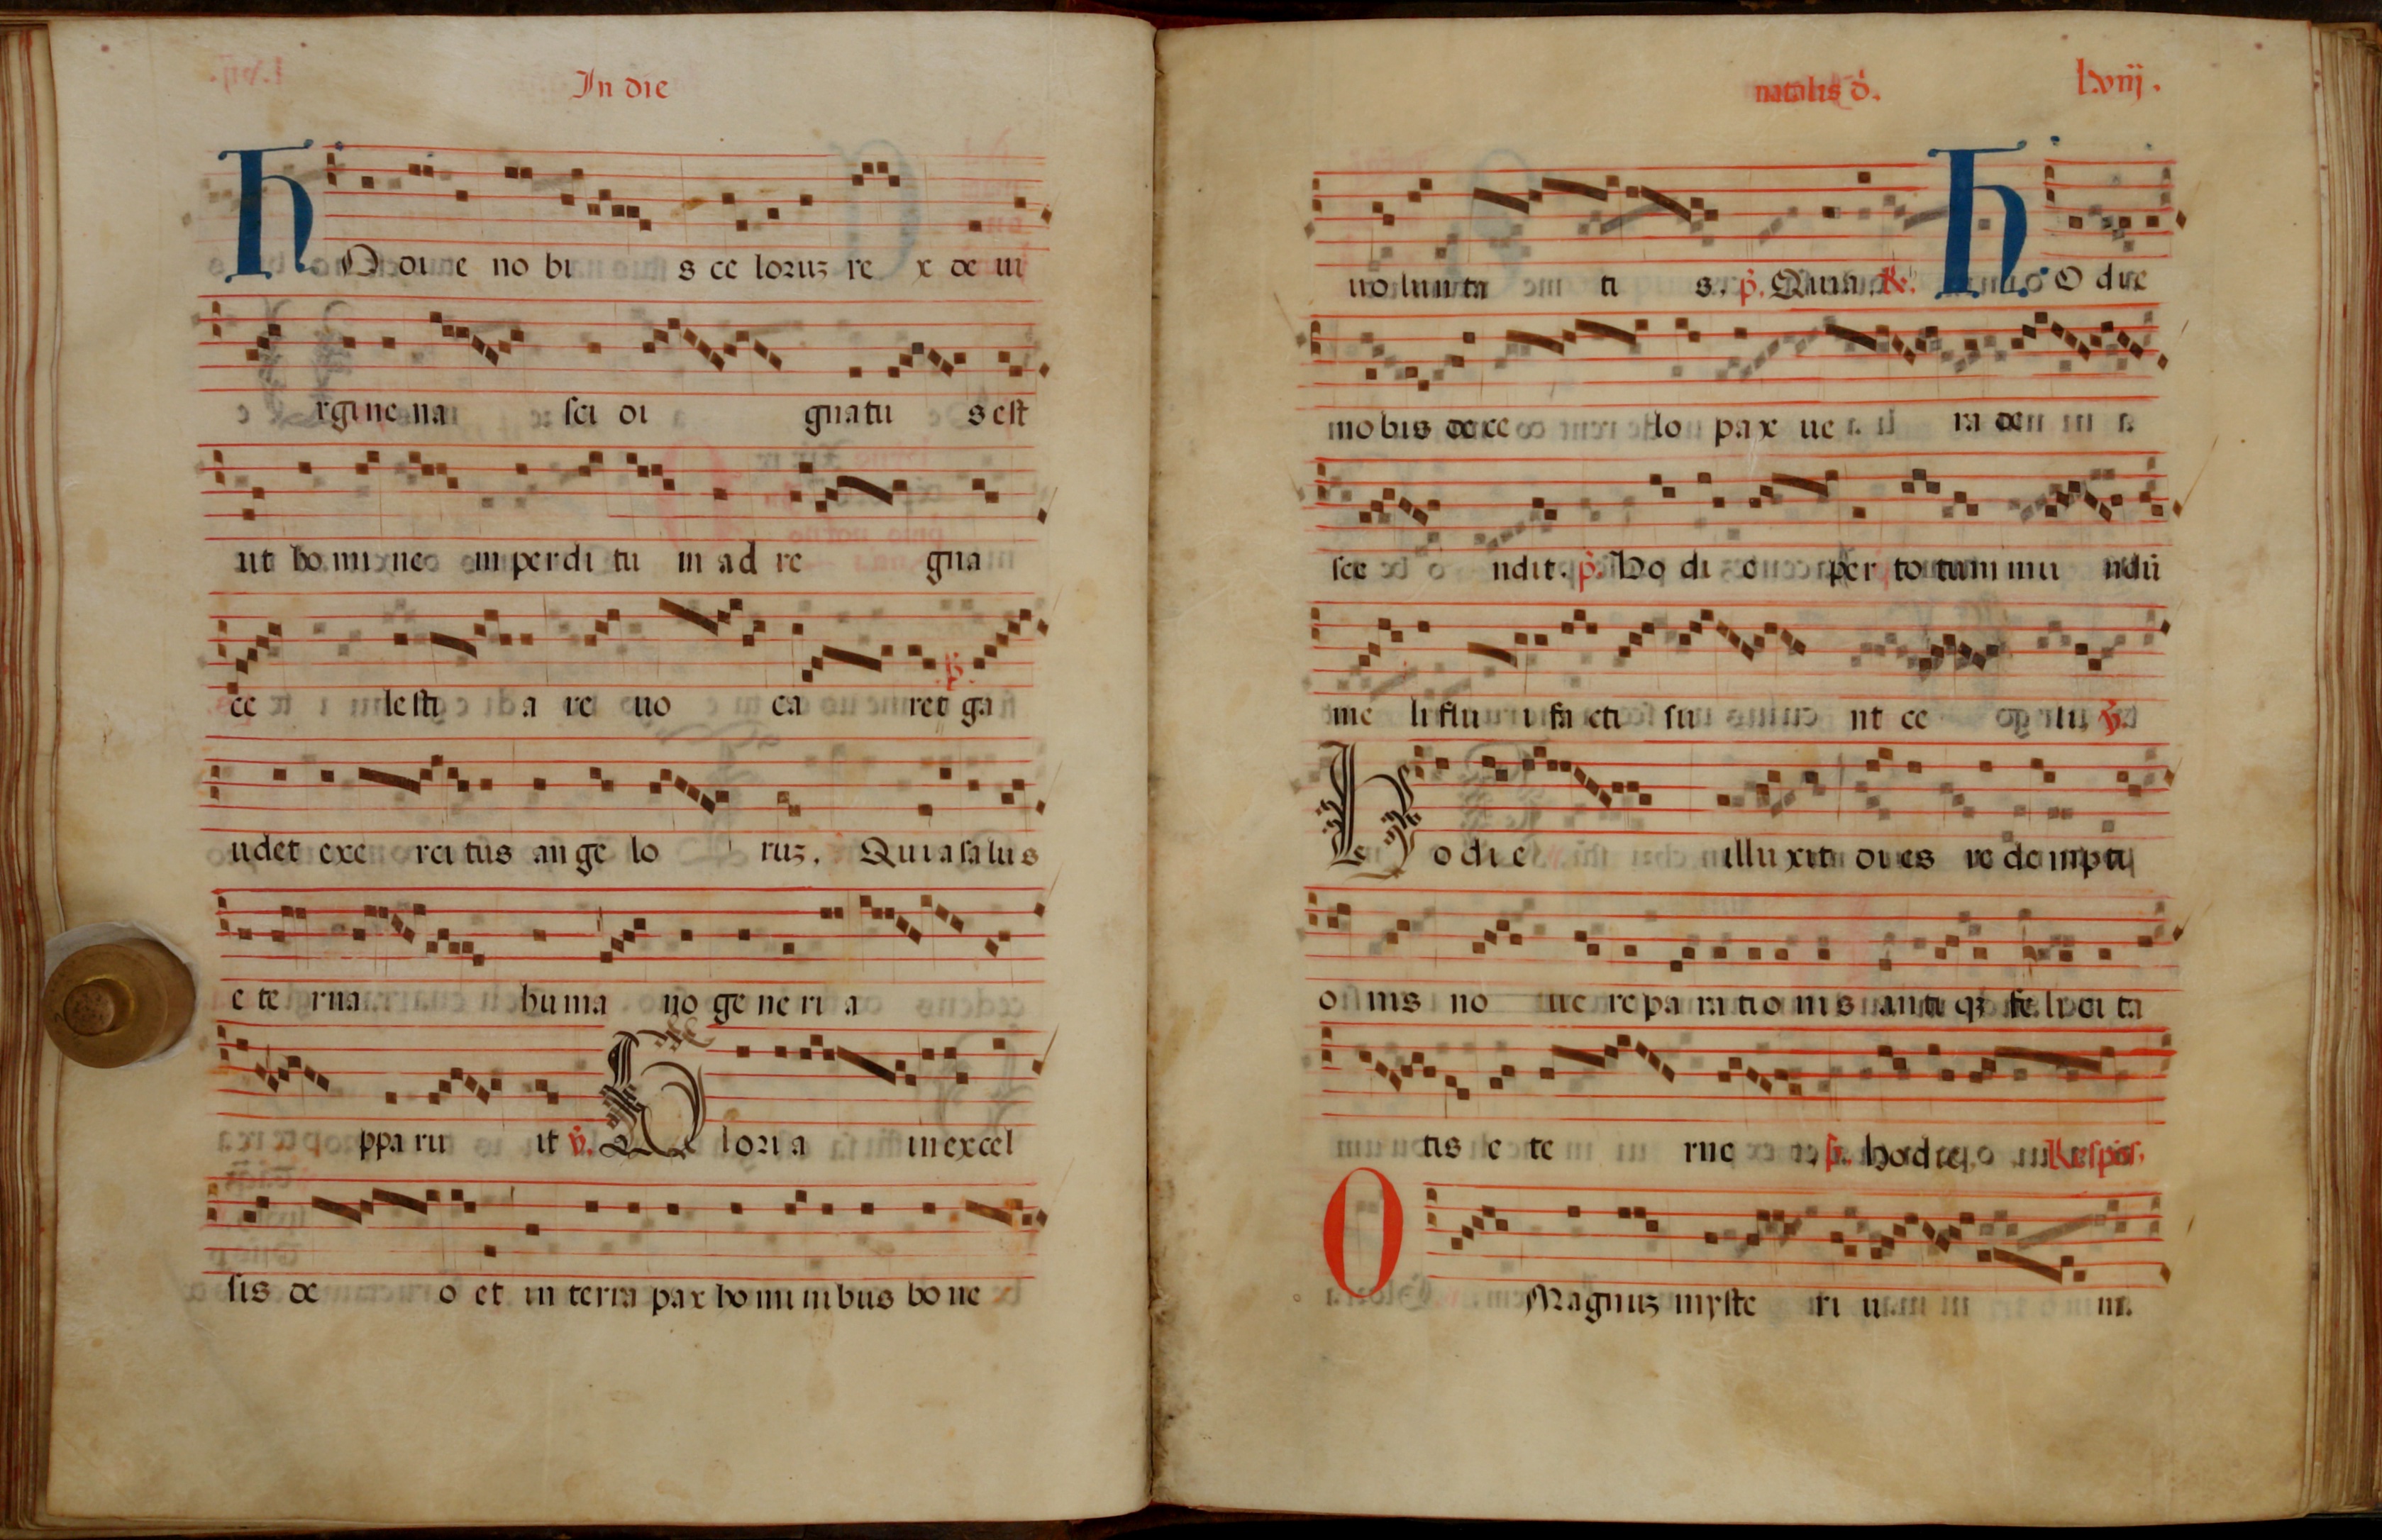 In die
HOdie no bis celoruz rex de ui
rgine nasci di gnatus est
ut homine in perditum ad regna
celestia reuocaret ga
udet exercitus angeloruz. Quia salus
eterna humano generi a
pparuit ℣. Gloria in excel
sis deo et in terra pax hominibus bone
natalis d. lviij.
uoluntatis. p. Quia. ℟. HOdie
nobis de celo pax uera de
scendit. p. Hodie per totum mundū
melliflui facti sunt celi ℣.
Hodie illuxit dies redempti
onis noue reparationis antiq felicita
tis eterne. p. hodie. Respōs.
O Magnuz mysterium.